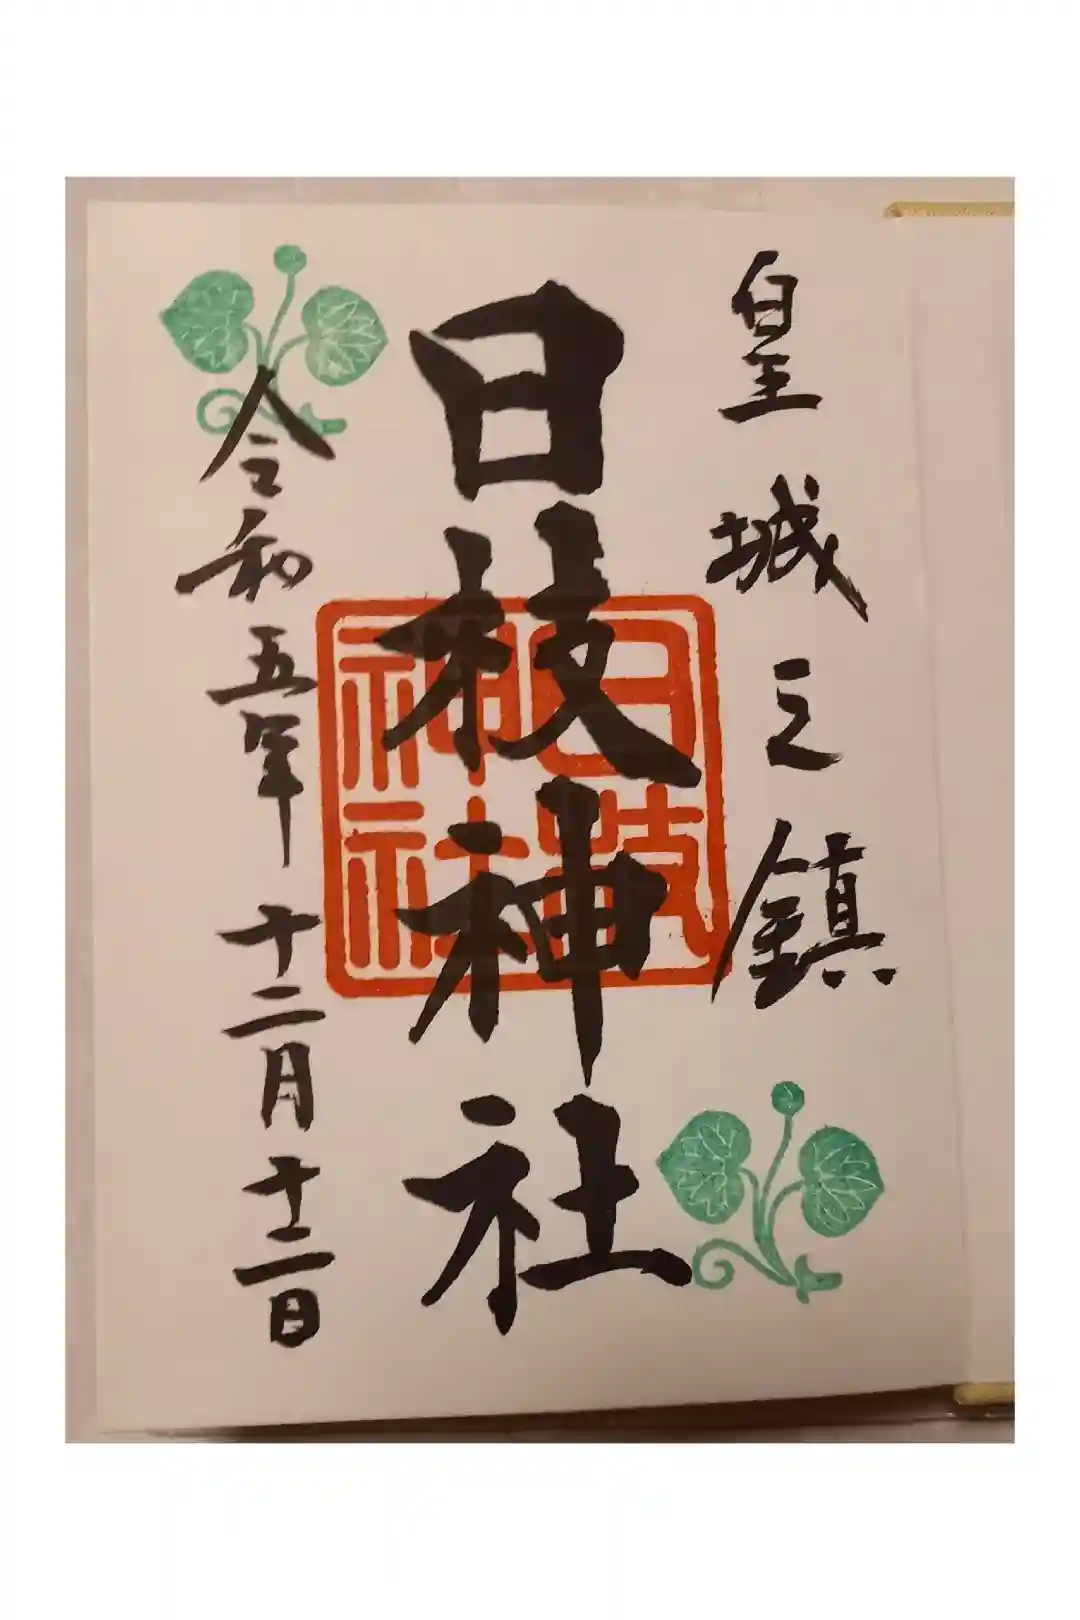 皇城之鎮
日枝神社
日枝神社
令和五年十二月十二日